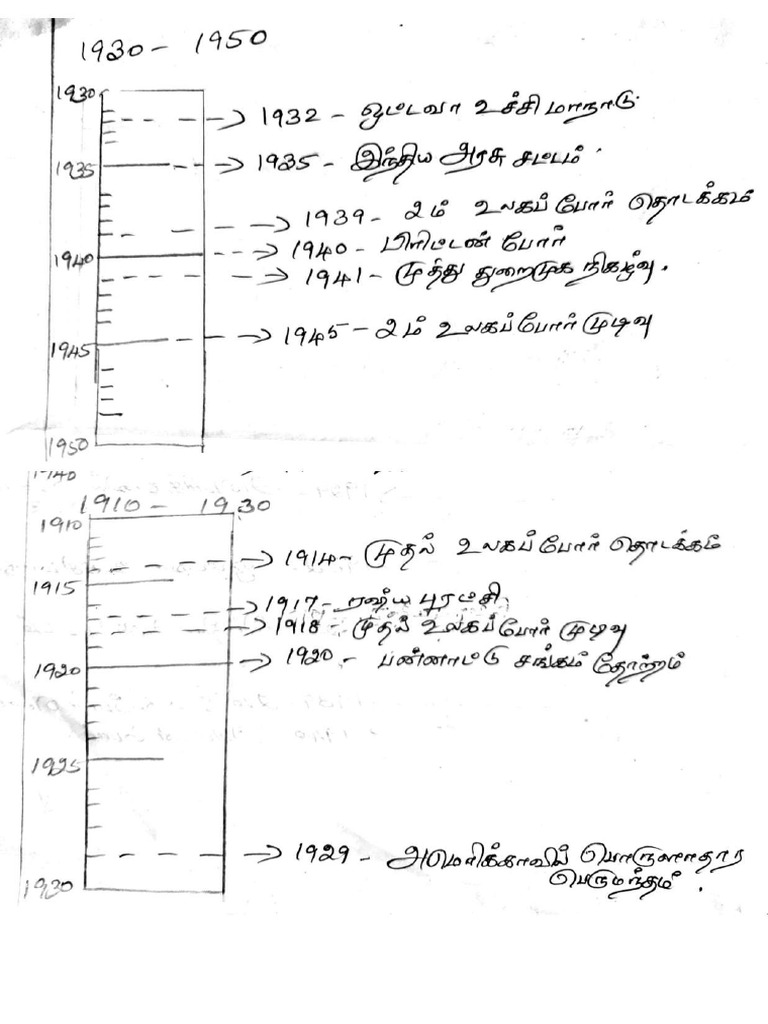 1930 - 1950
1930
→ 1932 - ஒட்டவா உச்சி மாநாடு.
1935
→ 1935 - இந்திய அரசு சட்டம்.
→ 1939 - 2ம் உலகப் போர் தொடக்கம்
1940
→ 1940 - பிரிட்டன் போர்
→ 1941 - முத்து துறைமுக நிகழ்வு.
1945
→ 1945 - 2ம் உலகப்போர் முடிவு
1950
1940
1910 - 1930
1910
→ 1914 - முதல் உலகப் போர் தொடக்கம்
1915
→ 1917 - ரஷ்ய புரட்சி.
→ 1918 - முதல் உலகப்போர் முடிவு
1920
→ 1920 - பன்னாட்டு சங்கம் தோற்றம்
1925
→ 1929 - அமெரிக்காவில் பொருளாதார
பெருமந்தம்.
1930